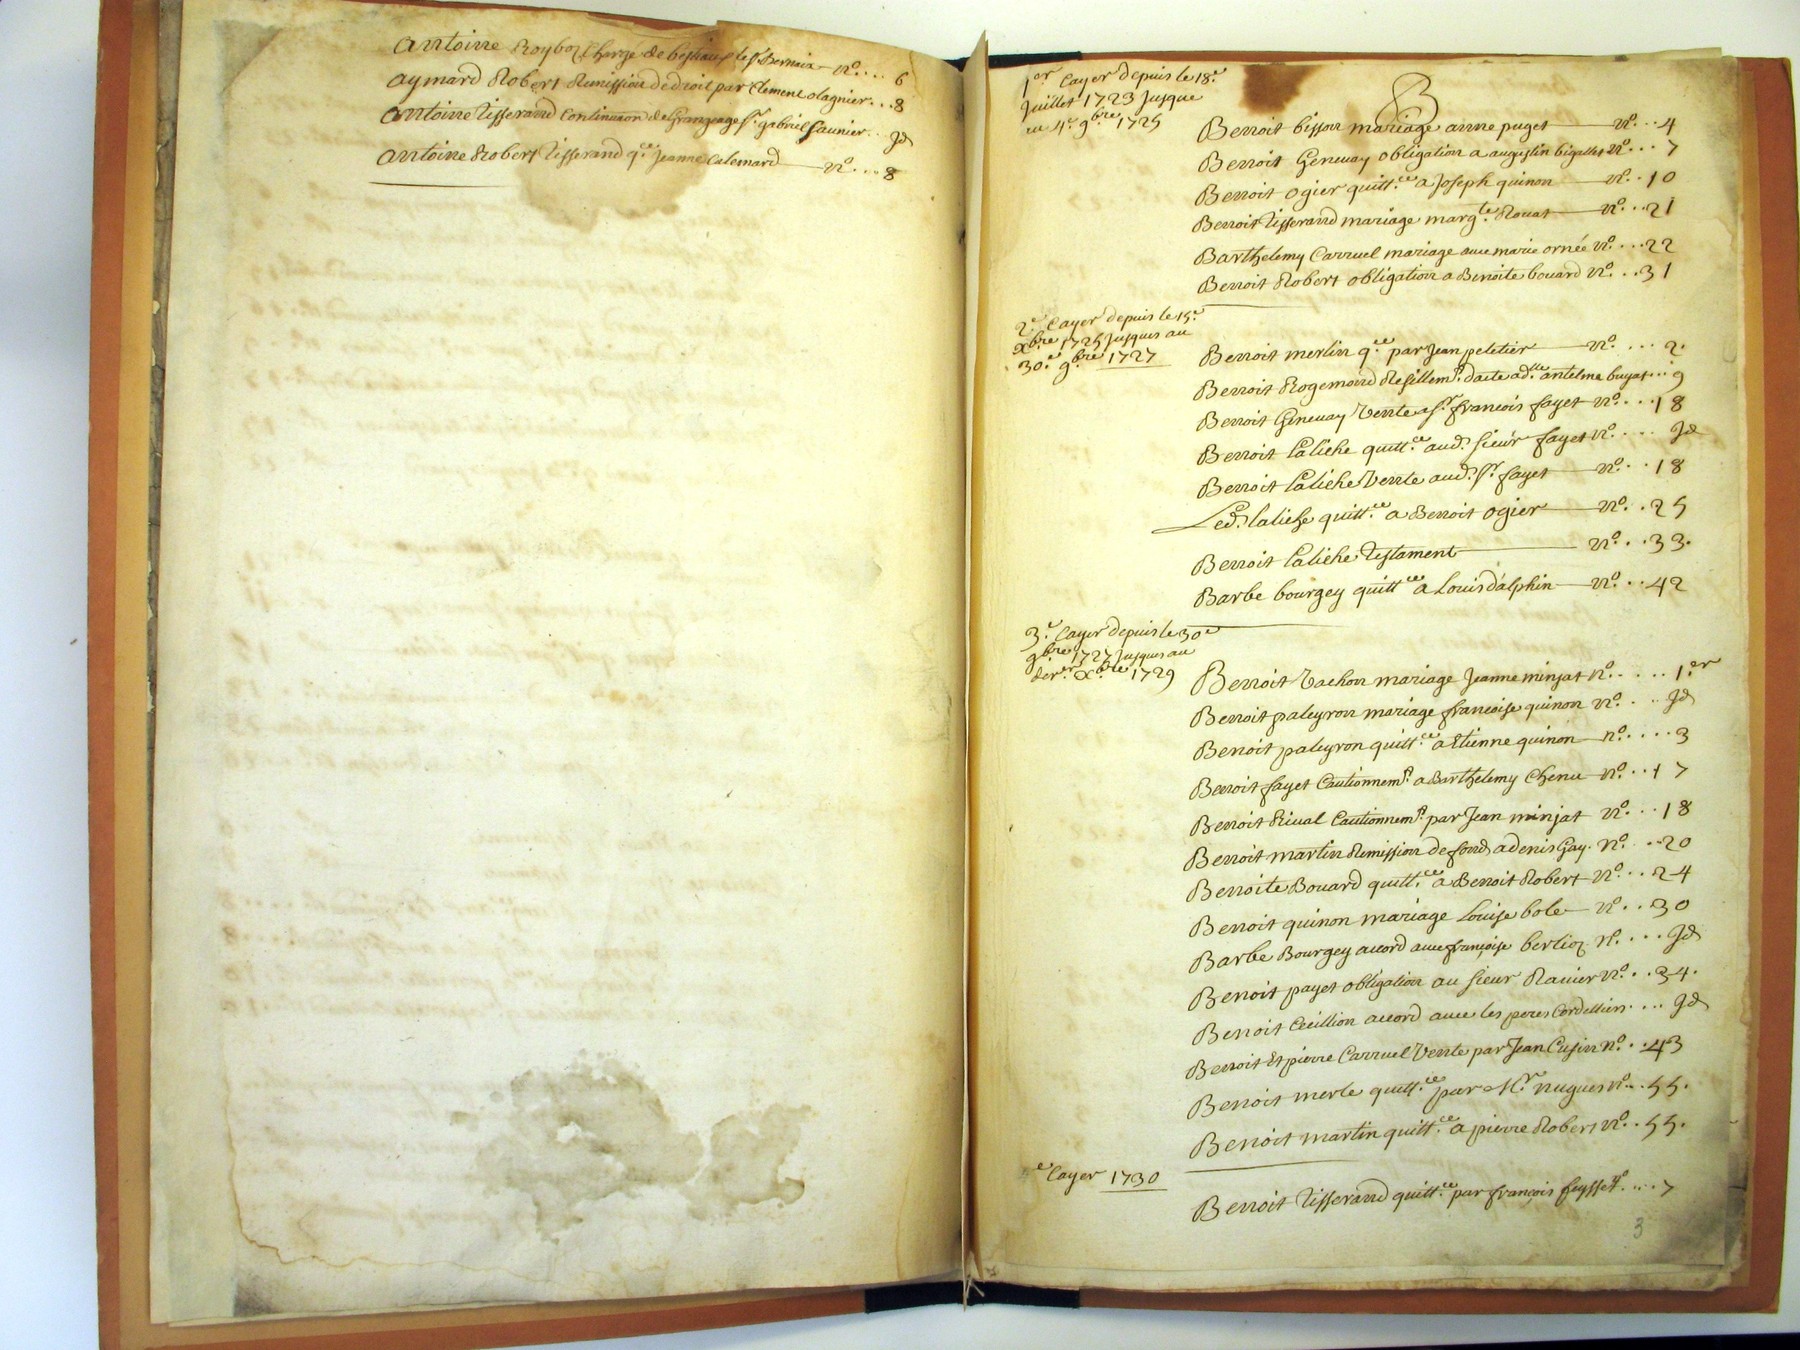 Antoine Royboz charge de bestiaux le sr n°.... 6
Aymard Robert Remission de droit par Clement olagnier...8
Antoine Tisserand Continuaon de Grangeage sr. gabriel saunier.. Jd
Antoine Robert Tisserand q.ce Jeanne Calemard n°....8
B
1er Cayer depuis le 18.e
Juillet 1723 Jusque
au 4.e 9bre 1725
Benoit bisson mariage anne puget n°...4
Benoit Genevay obligation a augustin bigallet n°...7
Benoit ogier quitt.ce a Joseph quinon n°..10
Benoit Tisserand mariage marg.te Rouat n°...21
Barthelemy Carruel mariage avec marie ornée n°...22
Benoit Robert obligation a Benoite bouard n°...31
2.e Cayer depuis le 15.e
Xbre 1725 Jusques au
30.e 9bre 1727
Benoit merlin q.ce par Jean peletier n°. ... 2.
Benoit Rogemond Resillemt. dacte a d.lle antelme buyat...9
Benoit Genevay Vente a sr. francois fayet n°....18
Benoit Laliche quitt.ce aud. sieur fayet n°.... Jd
Benoit Laliche Vente aud. sr. fayet n°...18
Led. laliche quitt.ce a Benoit ogier n°..25
Benoit Laliche Testament n°..33.
Barbe bourgey quitt.ce a Louis dalphin n°...42
3.e Cayer depuis le 30e
9bre 1727 Jusques au
der.er Xbre 1729
Benoit Vachon mariage Jeanne minjat n°..... 1.er
Benoit paleyron mariage francoise quinon n°. .. Jd
Benoit paleyron quitt.ce a Etienne quinon n°....3
Benoit fayet Cautionnemt. a Barthelemy Chenu n°..17
Benoit Rival Cautionnemt. par Jean minjat n°...18
Benoit martin Remission de fond a denis Gay. n°. ..20
Benoite Bouard quitt.ce a Benoit Robert n°...24
Benoit quinon mariage Louise bole n°..30
Barbe Bourgey acord avec françoise berlioz n°.... Jd
Benoit payet obligation au sieur Ravier n°..34.
Benoit Cecillion acord avec les peres Cordelliers.... Jd
Benoit Et pierre Carruel Vente par Jean Cusin n°..43
Benoit merle quitt.ce par Mr. nugues n°...55.
Benoit martin quitt.ce a pierre Robert n°..55.
e Cayer 1730
Benoit Tisserand quitt.ce par françois feysset n°....7
3